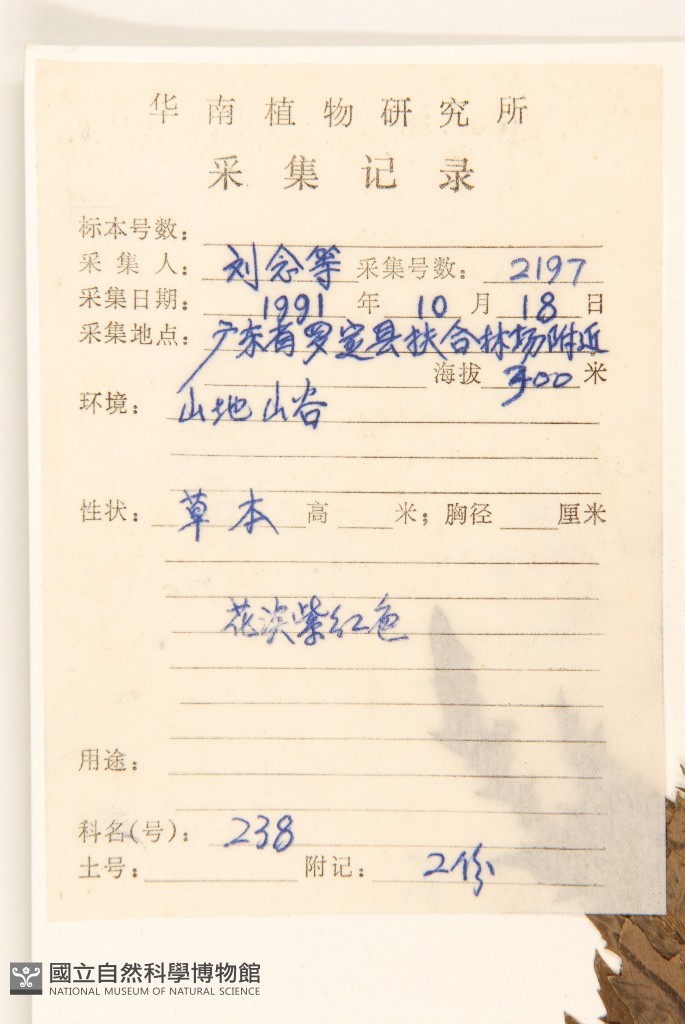 华南植物研究所
采集记录
标本号数：
采集人：刘念等 采集号数：2197
采集日期：1991 年 10 月 18 日
采集地点：广东省罗定县扶合林场附近
海拔 300 米
环境：山地山谷
性状：草本 高 米；胸径 厘米
花淡紫红色
用途：
科名(号)：238
土号： 附记：2份
國立自然科學博物館
NATIONAL MUSEUM OF NATURAL SCIENCE